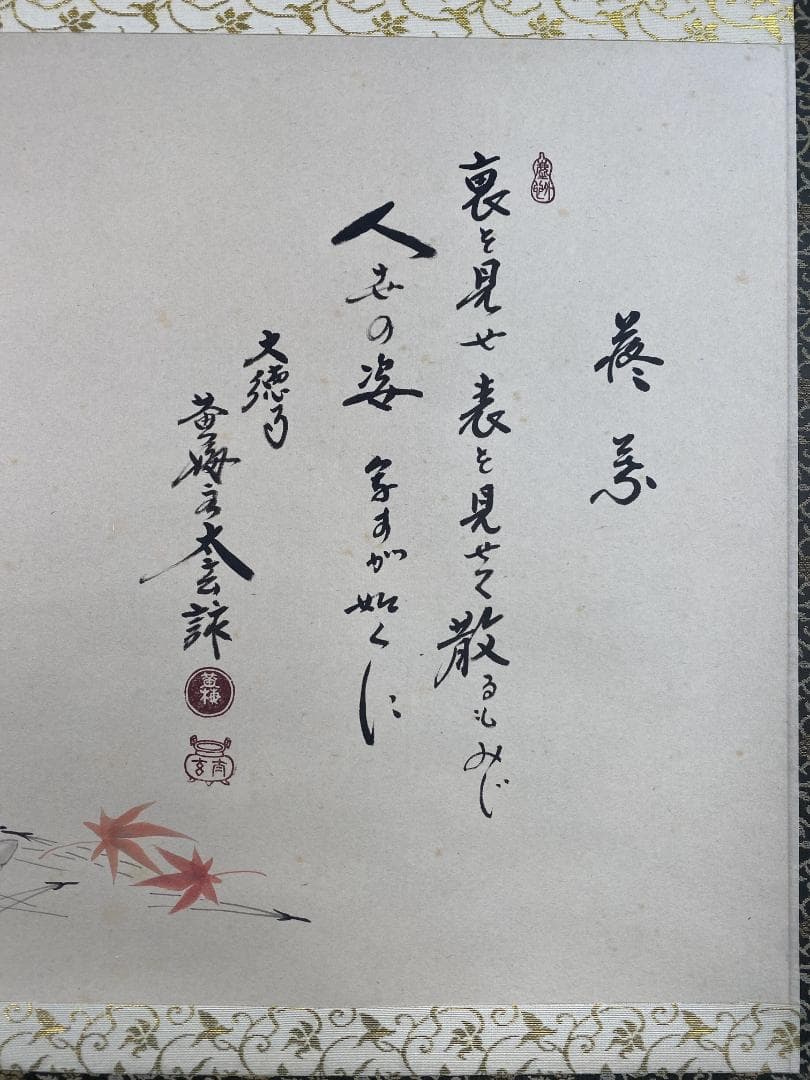 落葉
裏を見せ表を見せて散るもみじ
人世の姿 写すが如くに
大徳寺
黄梅主太玄誌
黄梅
太玄